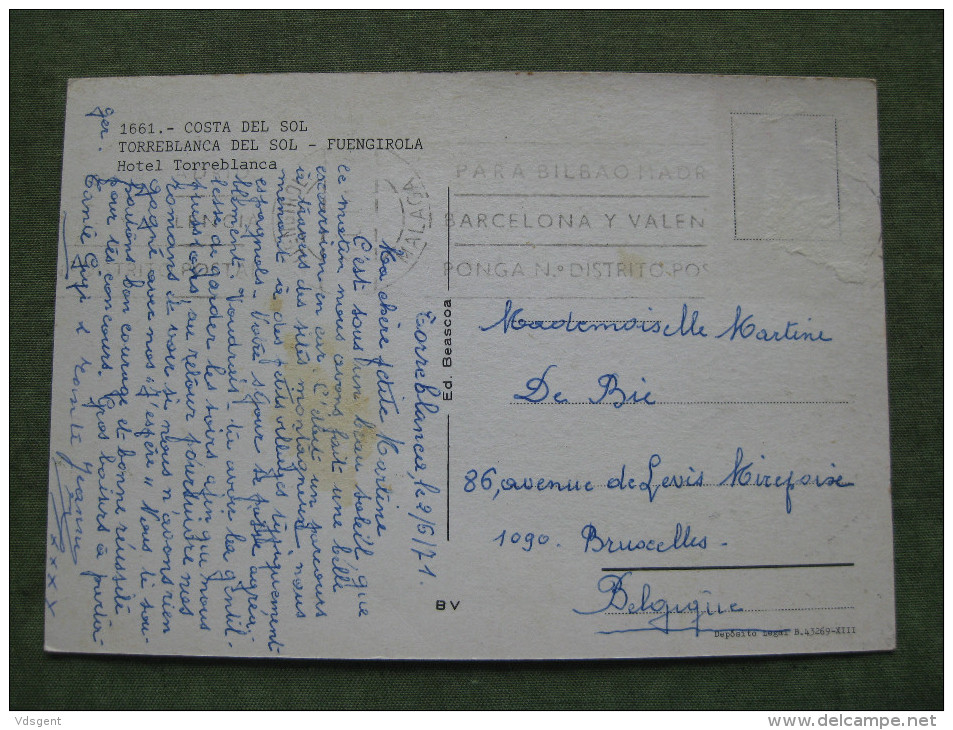 1661.- COSTA DEL SOL
TORREBLANCA DEL SOL - FUENGIROLA
Hotel Torreblanca
Torreblanca, le 2/6/71.
Ma chère petite Martine
C'est sous un beau soleil que
ce matin nous avons fait une belle
excursion en car. C'était un parcours
à travers des sites montagneux nous
menant à des petits villages typiquement
espagnols. Notre séjour se passe agréa-
blement. Voudrais-tu avoir la gentil-
lesse de garder les soirs afin que nous
puissions, au retour poursuivre nos
romans et voir si nous n'avons rien
gagné avec nos "J'espère" Nous te sou-
haitons bon courage et bonne réussite
pour tes concours. Gros baisers à parta-
ger.
Tante Gigi &
Jeanne
xxxx
Ed. Beascoa
BV
MALAGA
PARA BILBAO MADR
BARCELONA Y VALEN
PONGA N.º DISTRITO POS
Mademoiselle Martine
De Bie
86, avenue de Levis Mirepoix
1090. Bruxelles.
Belgique
Depósito Legal B.43269-XIII
Vdsgent
delcampe.net